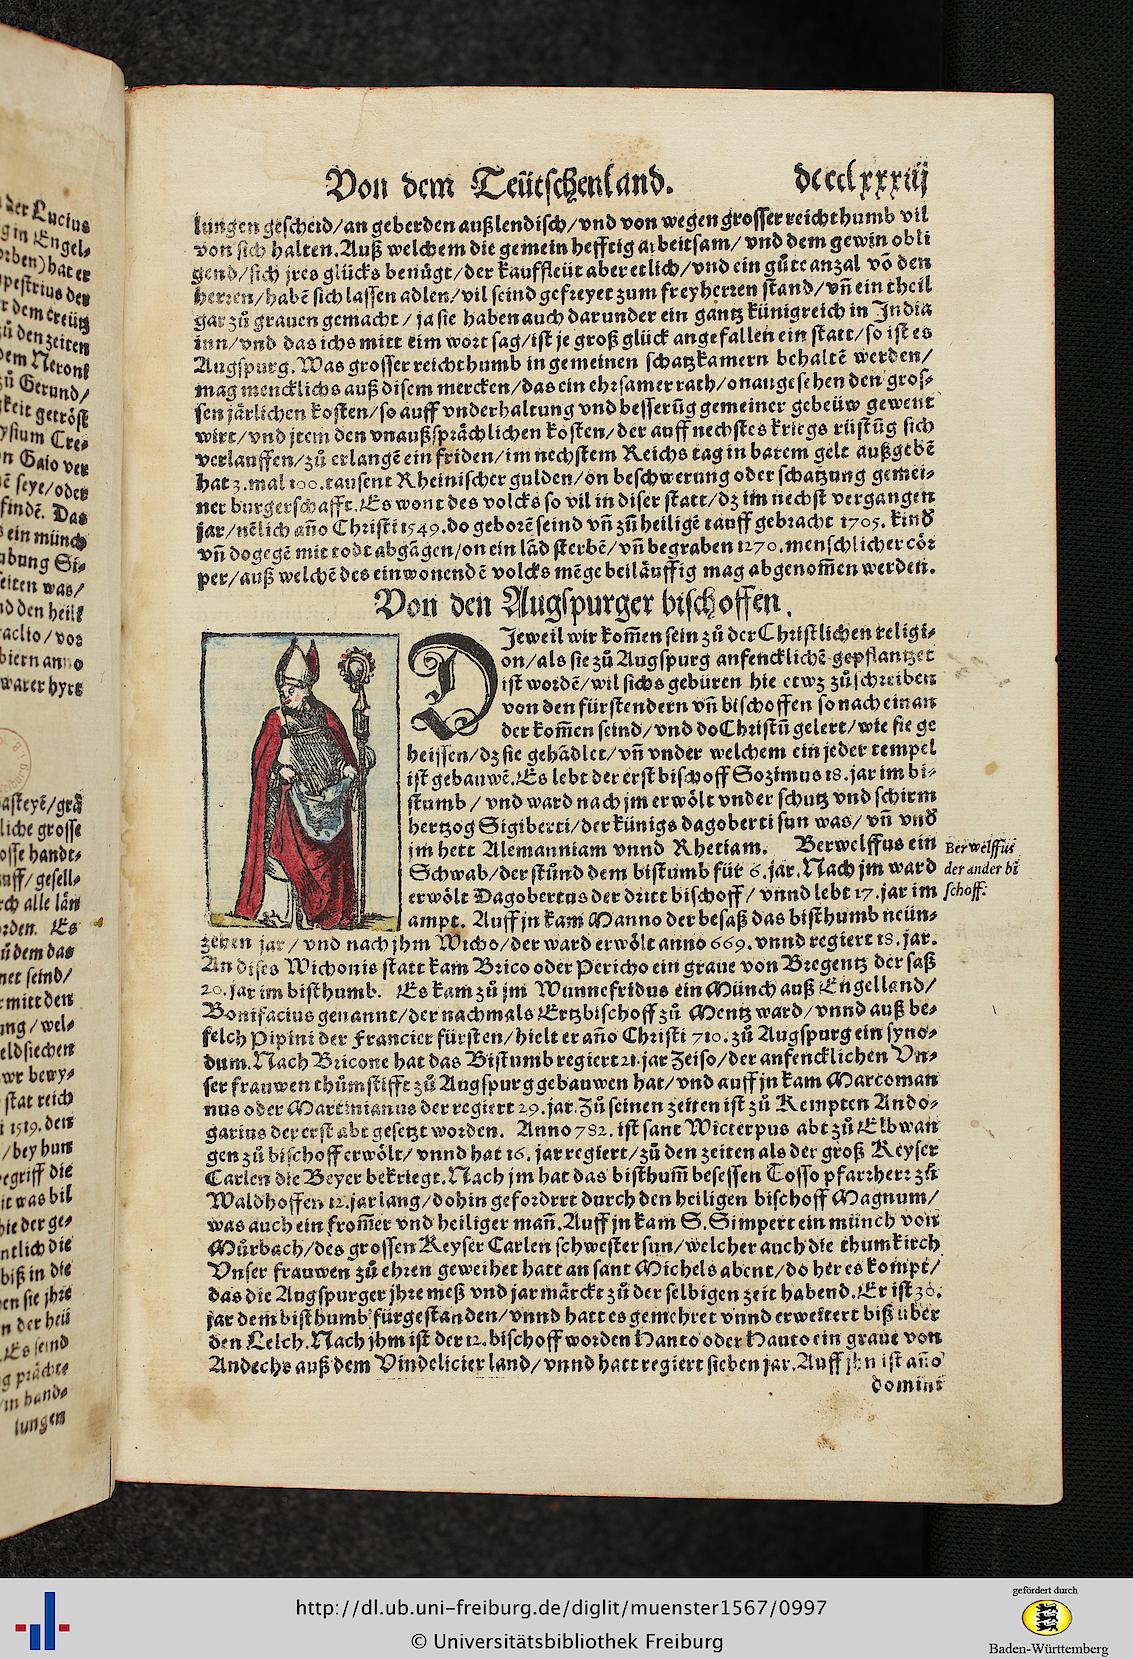 Von dem Teütschenland. dccclxxxiij
lungen gescheid/an geberden außlendisch/vnd von wegen grosser reichthumb vil
von sich halten. Auß welchem die gemein hefftig arbeitsam/vnd dem gewin obli
gend/sich jres glücks benügt/der kauffleüt aber etlich/vnd ein gůte anzal võ den
herren/habẽ sich lassen adlen/vil seind gefreyet zum freyherren stand/vñ ein theil
gar zů grauen gemacht/ja sie haben auch darunder ein gantz künigreich in India
inn/vnd das ichs mitt eim wort sag/ist je groß glück angefallen ein statt/so ist es
Augspurg. Was grosser reichthumb in gemeinen schatzkamern behaltẽ werden/
mag mencklichs auß disem mercken/das ein ehrsamer rath/onangesehen den gros⸗
sen järlichen kosten/so auff vnderhaltung vnd besserũg gemeiner gebeüw gewent
wirt/vnd jtem den vnaußsprächlichen kosten/der auff nechstes kriegs rüstũg sich
verlauffen/zů erlangẽ ein friden/im nechstem Reichs tag in barem gelt außgebẽ
hat 3. mal 100. tausent Rheinischer gulden/on beschwerung oder schatzung gemei⸗
ner burgerschafft. Es wont des volcks so vil in diser statt/dz im nechst vergangen
jar/nẽlich año Christi 1549. do geborẽ seind vñ zũ heiligẽ tauff gebracht 1705. kind
vñ dogegẽ mit todt abgãgen/on ein lãd sterbẽ/vñ begraben 1270. menschlicher cör
per/auß welchẽ des einwonendẽ volcks mẽge beiläuffig mag abgenom̃en werden.
Von den Augspurger bischoffen.
DJeweil wir kom̃en sein zů der Christlichen religi⸗
on/als sie zů Augspurg anfencklichẽ gepflantzet
ist wordẽ/wil sichs gebüren hie etwz zůschreiben
von den fürstendern vñ bischoffen so nach einan
der kom̃en seind/vnd do Christũ gelert/wie sie ge
heissen/dz sie gehãdlet/vñ vnder welchem ein jeder tempel
ist gebauwẽ. Es lebt der erst bischoff Sozimus 18. jar im bi⸗
stumb/vnd ward nach jm erwölt vnder schutz vnd schirm
hertzog Sigiberti/der künigs dagoberti sun was/vñ vnd
jm hett Alemanniam vnnd Rhetiam. Berwelffus ein
Schwab/der stůnd dem bistumb für 6. jar. Nach jm ward
erwölt Dagobertus der dritt bischoff/vnnd lebt 17. jar im
ampt. Auff jn kam Manno der besaß das bisthumb neün⸗
Berwelffus
der ander bi
schoff.
zehen jar/vnd nach jhm Wicho/der ward erwölt anno 669. vnnd regiert 18. jar.
An dises Wichonis statt kam Brico oder Pericho ein graue von Bregentz der saß
20. jar im bisthumb. Es kam zů jm Wunnefridus ein Münch auß Engelland/
Bonifacius genannt/der nachmals Ertzbischoff zů Mentz ward/vnnd auß be⸗
felch Pipini der Francier fürsten/hielt er año Christi 710. zů Augspurg ein syno⸗
dum. Nach Bricone hat das Bistumb regiert 21. jar Zeiso/der anfencklichen Vn⸗
ser frauwen thůmstifft zů Augspurg gebauwen hat/vnd auff jn kam Marcoman
nus oder Martinianus der regiert 29. jar. Zů seinen zeiten ist zů Kempten Ando⸗
garius der erst abt gesetzt worden. Anno 782. ist sant Wicterpus abt zů Elbwan
gen zů bischoff erwölt/vnnd hat 16. jar regiert/zů den zeiten als der groß Keyser
Carlen die Beyer bekriegt. Nach jm hat das bisthum̃ besessen Tosso pfarrherr zů
Waldhoffen 12. jar lang/dohin gefordret durch den heiligen bischoff Magnum/
was auch ein from̃er vnd heiliger mañ. Auff jn kam S. Simpert ein münch von
Můrbach/des grossen Keyser Carlen schwester sun/welcher auch die thumkirch
Vnser frauwen zů ehren geweihet hatt an sant Michels abent/do her es kompt/
das die Augspurger jhre meß vnd jarmärckt zů der selbigen zeit habend. Er ist 30.
jar dem bisthumb fürgestanden/vnnd hatt es gemehret vnnd erweitert biß über
den Lelch. Nach jhm ist der 12. bischoff worden Hanto oder Hauto ein graue von
Andechs auß dem Vindelicier land/vnnd hatt regiert sieben jar. Auff jhn ist año
domini
der Lucius
g in Engel⸗
hat er
den zeiten
Gerund/
keit getröst
n Gaio ver
seye/oder
findẽ. Das
s ein münch
bung Si⸗
eiten was/
nd den heili
raclio/vor
liche grosse
osse handt⸗
uff/gesell⸗
rch alle län
Es
ů dem das
net seind/
mitt den
ung/wel⸗
eldsiechen
wr bewy⸗
statt reich
1519. den
/bey hun
egriff die
it was bil
hie der ge⸗
ntlich die
biß in die
en sie jhre
n der heü
Es seind
g prächt⸗
in hand⸗
lungen
http://dl.ub.uni-freiburg.de/diglit/muenster1567/0997
© Universitätsbibliothek Freiburg
gefördert durch
Baden-Württemberg